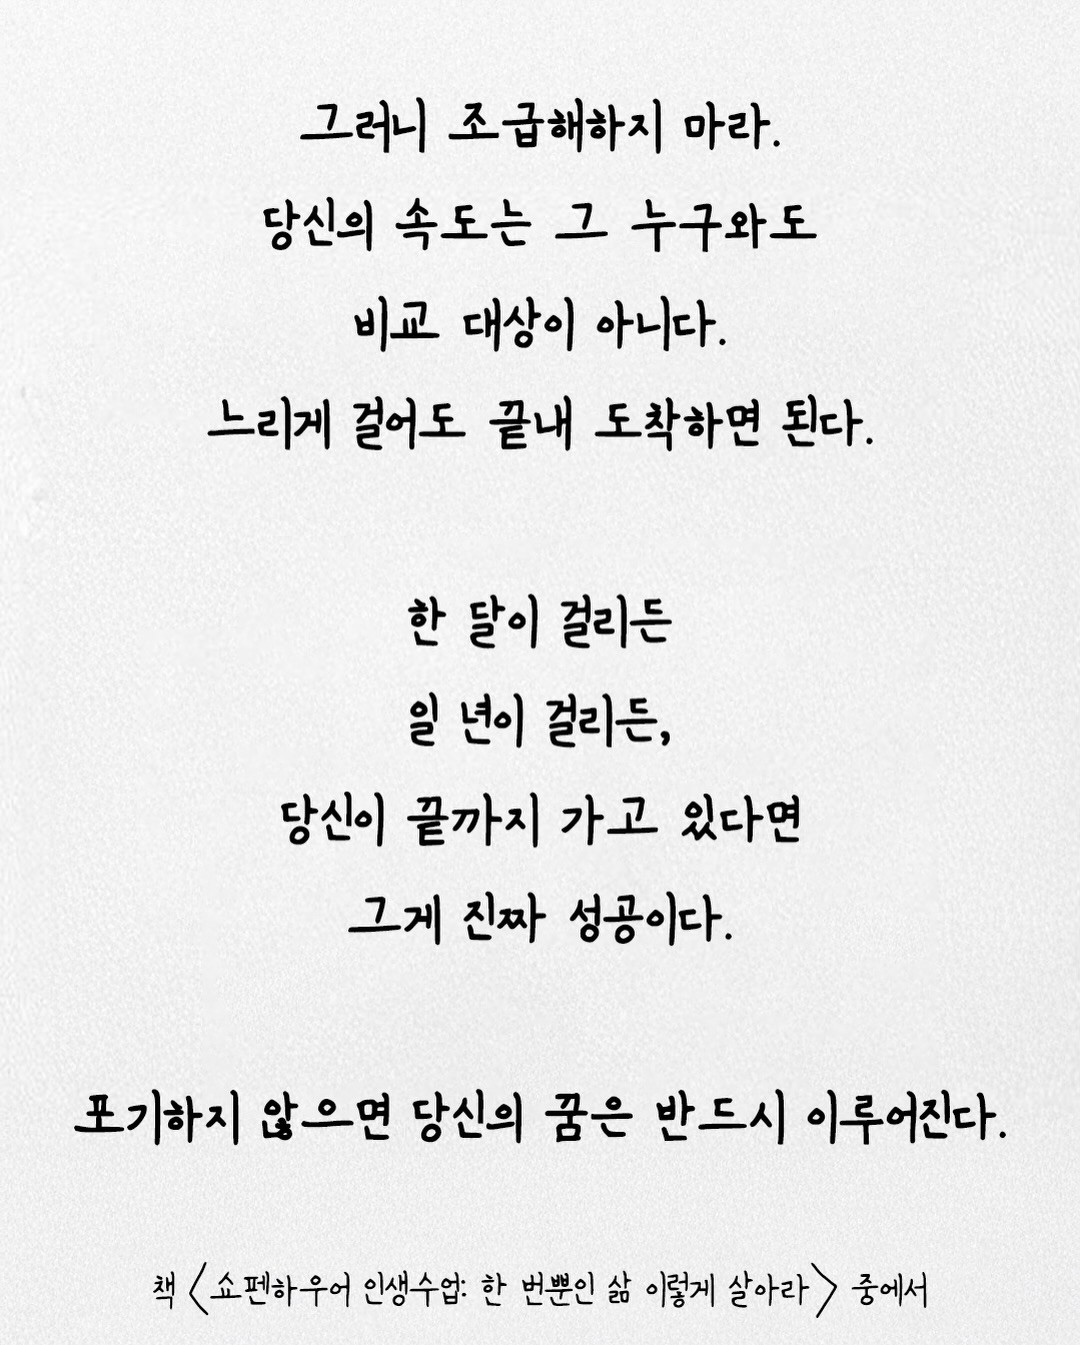 그러니 조급해하지 마라.
당신의 속도는 그 누구와도
비교 대상이 아니다.
느리게 걸어도 끝내 도착하면 된다.
한 달이 걸리든
일 년이 걸리든,
당신이 끝까지 가고 있다면
그게 진짜 성공이다.
포기하지 않으면 당신의 꿈은 반드시 이루어진다.
책 〈쇼펜하우어 인생수업: 한 번뿐인 삶 이렇게 살아라〉 중에서